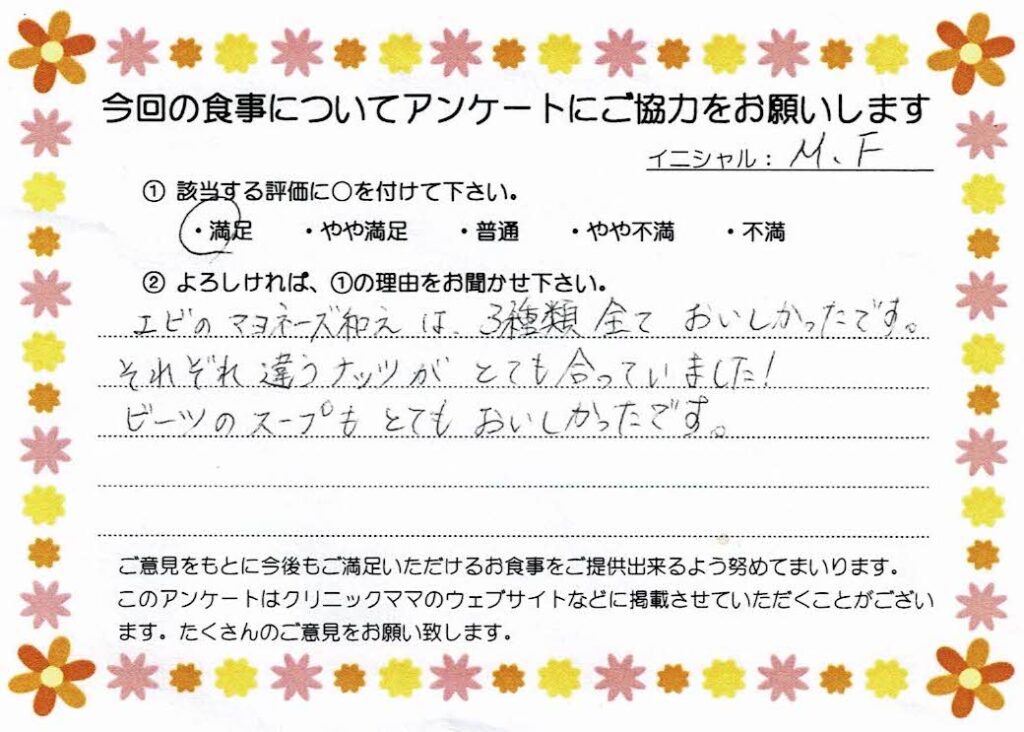 今回の食事についてアンケートにご協力をお願いします
イニシャル： M.F
① 該当する評価に〇を付けて下さい。
・満足 ・やや満足 ・普通 ・やや不満 ・不満
② よろしければ、①の理由をお聞かせ下さい。
エビのマヨネーズ和えは、3種類全ておいしかったです。
それぞれ違うナッツがとても合っていました！
ビーツのスープもとてもおいしかったです。
ご意見をもとに今後もご満足いただけるお食事をご提供出来るよう努めてまいります。
このアンケートはクリニックママのウェブサイトなどに掲載させていただくことがござい
ます。たくさんのご意見をお願い致します。